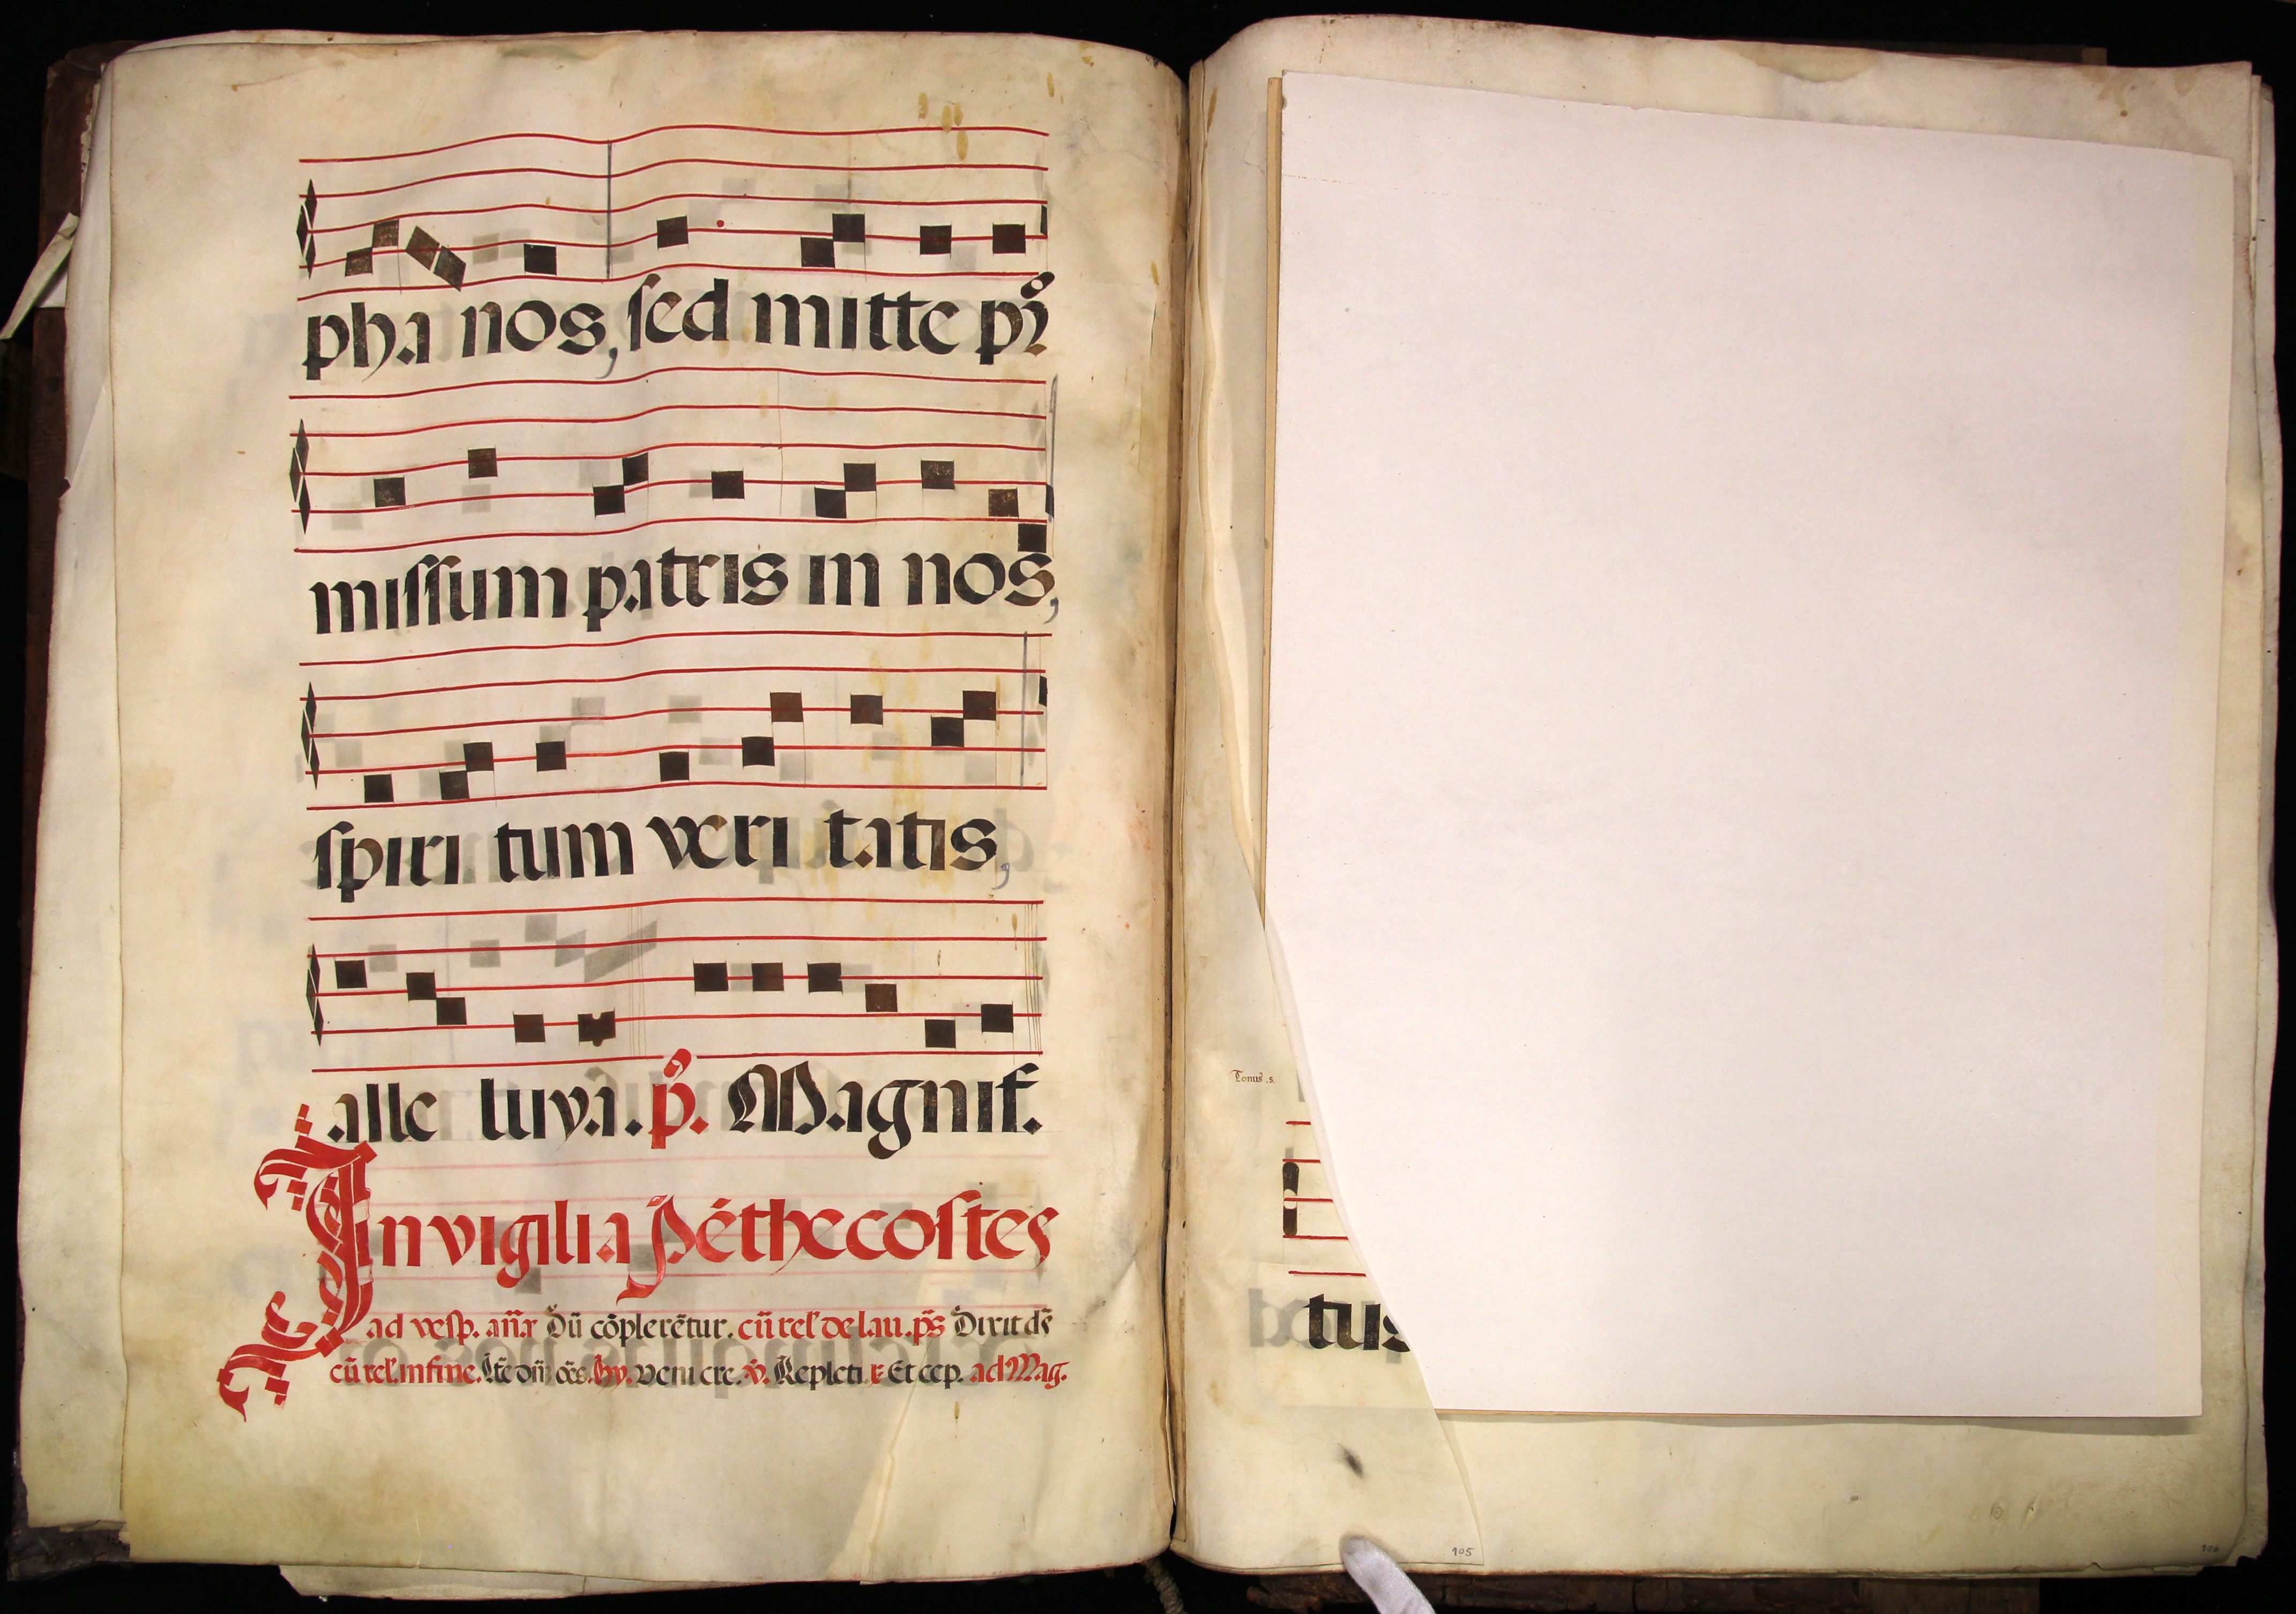 pha nos, sed mitte pr̃
missum patris in nos,
spiri tum veri tatis,
alle luya. p̃. Magnif.
In vigilia Pẽthecostes
ad vesp. añã Dũ cõplerẽtur. cũ rel' de lau. p̃s Dixit dñs
cũ rel. in fine. Ite dñm oẽs. hy. veni cre. v̂. Repleti r Et cep. ad Mag.
Tonus .s.
tus
105
106